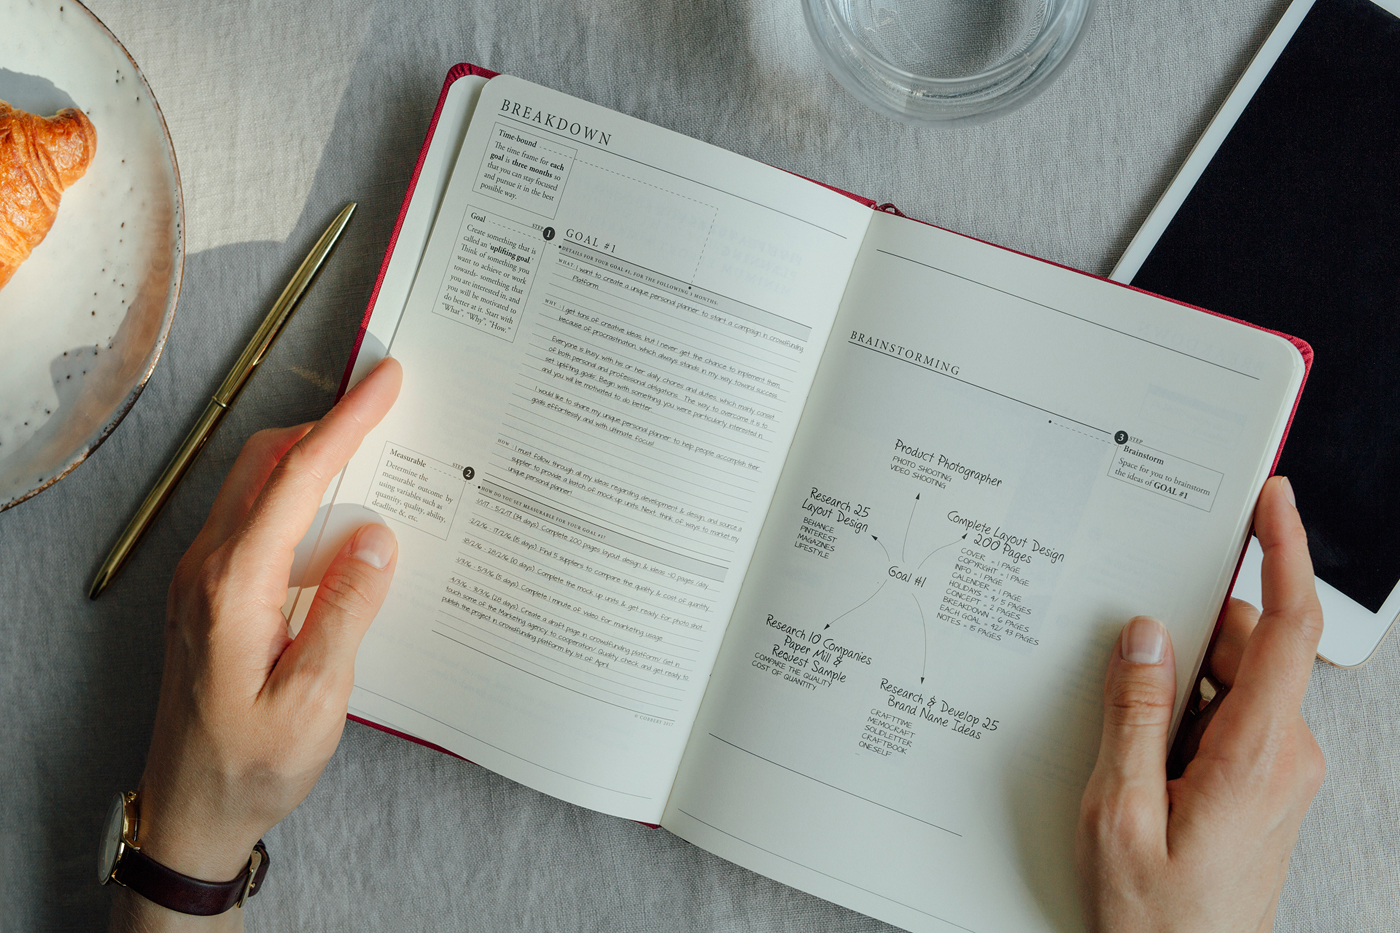 BREAKDOWN
Time-bound
The time frame for each
goal is three months so
that you can stay focused
and pursue it in the best
possible way.
Goal
Create something that is
called an 'uplifting goal.'
Think of something you
want to achieve or work
towards- something that
you are interested in, and
you will be motivated to
do better at it. Start with
"What", "Why", "How."
STEP 1
GOAL #1
DETAILS FOR YOUR GOAL #1, FOR THE FOLLOWING 3 MONTHS:
WHAT : I want to create a unique personal planner to start a campaign in crowdfunding
Platform.
WHY : I get tons of creative ideas, but I never get the chance to implement them
because of procrastination, which always stands in my way toward success.
Everyone is busy with his or her daily chores and duties, which mainly consist
of both personal and professional obligations. The way to overcome it is to
set uplifting goals. Begin with something you were particularly interested in,
and you will be motivated to do better.
I would like to share my unique personal planner to help people accomplish their
goals effortlessly and with ultimate focus!
HOW : I must follow through all my ideas regarding development & design, and source a
supplier to provide a batch of mock up units. Next, think of ways to market my
unique personal planner!
Measurable
Determine the
measurable outcome by
using variables such as
quantity, quality, ability,
deadline &, etc.
STEP 2
HOW DO YOU SET MEASURABLE FOR YOUR GOAL #1?
(14 days). Complete 200 pages layout design & ideas -10 pages /daily.
2/2/16 - 17/2/16 (15 days). Find 5 suppliers to compare the quality & cost of quantity.
(10 days). Complete the mock up units & get ready for photo shot.
(5 days). Complete 1 minute of video for marketing usage.
(28 days). Create a draft page in crowdfunding platform/ Get in
touch some of the Marketing agency to cooperation/ Quality check and get ready to
publish the project in crowdfunding platform by 1st of April.
BRAINSTORMING
3 STEP
Brainstorm
Space for you to brainstorm
the ideas of GOAL #1
Product Photographer
PHOTO SHOOTING
VIDEO SHOOTING
Research 25
Layout Design
BEHANCE
PINTEREST
MAGAZINES
LIFESTYLE
Complete Layout Design
200 Pages
COVER = 1 PAGE
COPYRIGHT = 1 PAGE
INFO = 1 PAGE
CALENDER = 1 PAGE
HOLIDAYS = 4/ 5 PAGES
CONCEPT = 2 PAGES
BREAKDOWN = 6 PAGES
EACH GOAL = 42/ 43 PAGES
NOTES = 15 PAGES
Goal #1
Research 10 Companies
Paper Mill &
Request Sample
COMPARE THE QUALITY
COST OF QUANTITY
Research & Develop 25
Brand Name Ideas
CRAFTTIME
MEMOCRAFT
SOLIDLETTER
CRAFTBOOK
ONESELF